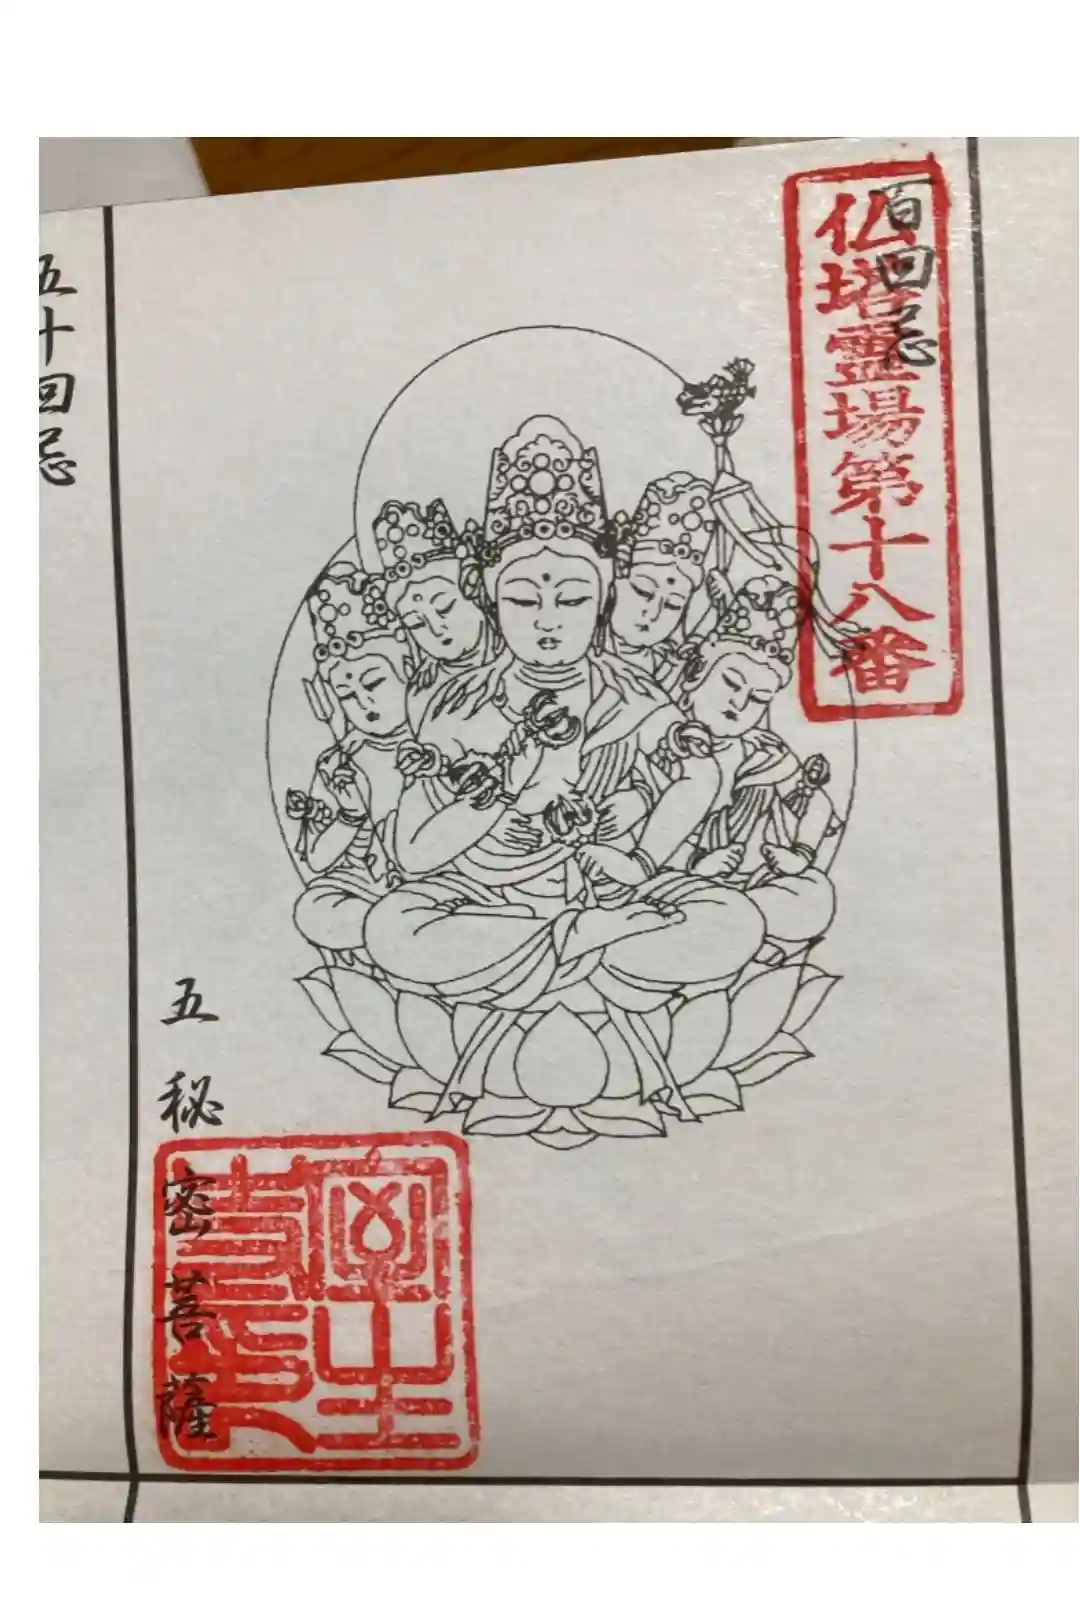 百回忌
仏塔霊場第十八番
五秘密菩薩
五十回忌